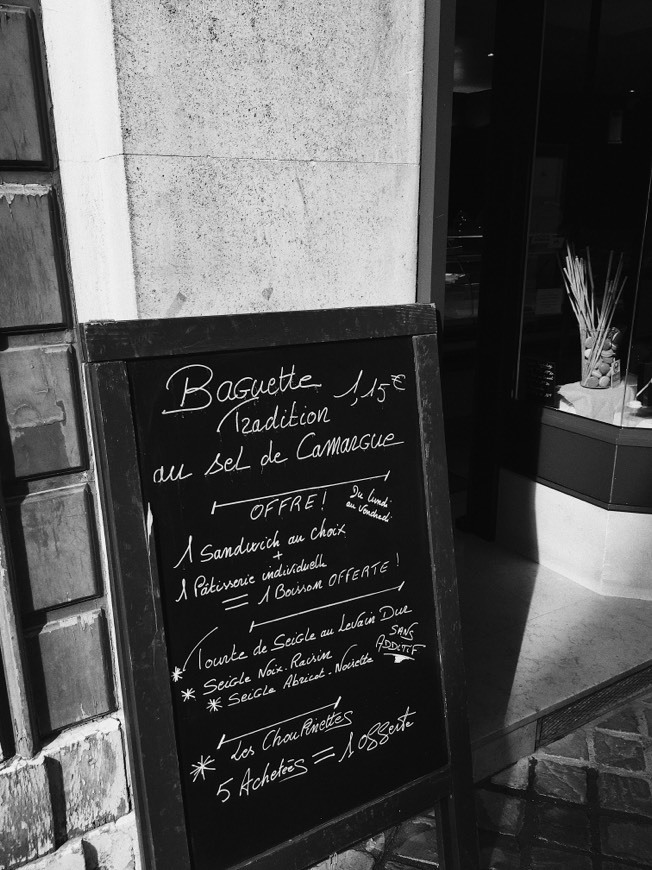 Baguette 1,15€
Tradition
au sel de Camargue
OFFRE! Du lundi
au vendredi
1 Sandwich au choix
+
1 Pâtisserie individuelle
= 1 Boisson OFFERTE!
* Tourte de Seigle au Levain Dur
* Seigle Noix-Raisin SANS
* Seigle Abricot-Noisette ADDITIF
* Les Choupinettes
5 Achetées = 1 offerte